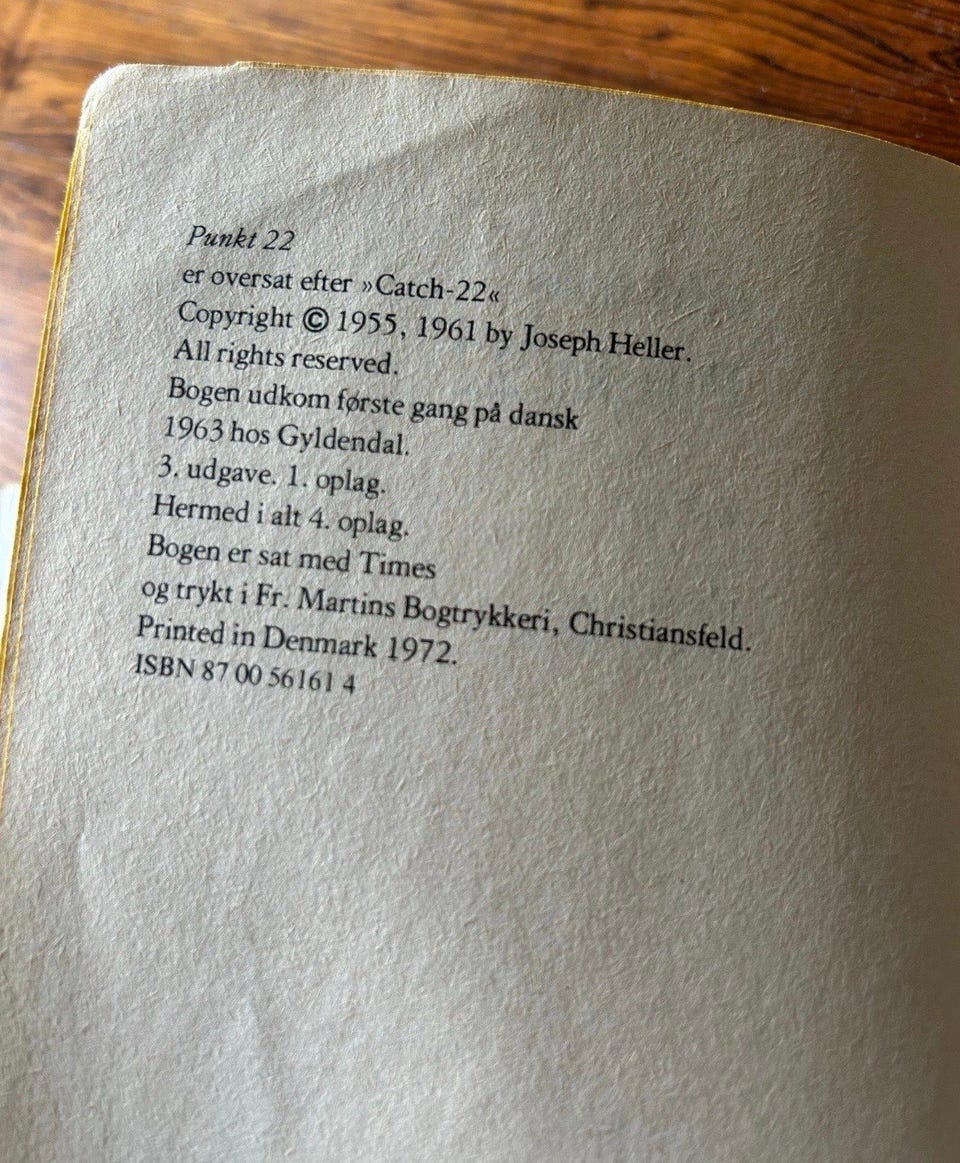 Punkt 22
er oversat efter »Catch-22«
Copyright © 1955, 1961 by Joseph Heller.
All rights reserved.
Bogen udkom første gang på dansk
1963 hos Gyldendal.
3. udgave. 1. oplag.
Hermed i alt 4. oplag.
Bogen er sat med Times
og trykt i Fr. Martins Bogtrykkeri, Christiansfeld.
Printed in Denmark 1972.
ISBN 87 00 56161 4